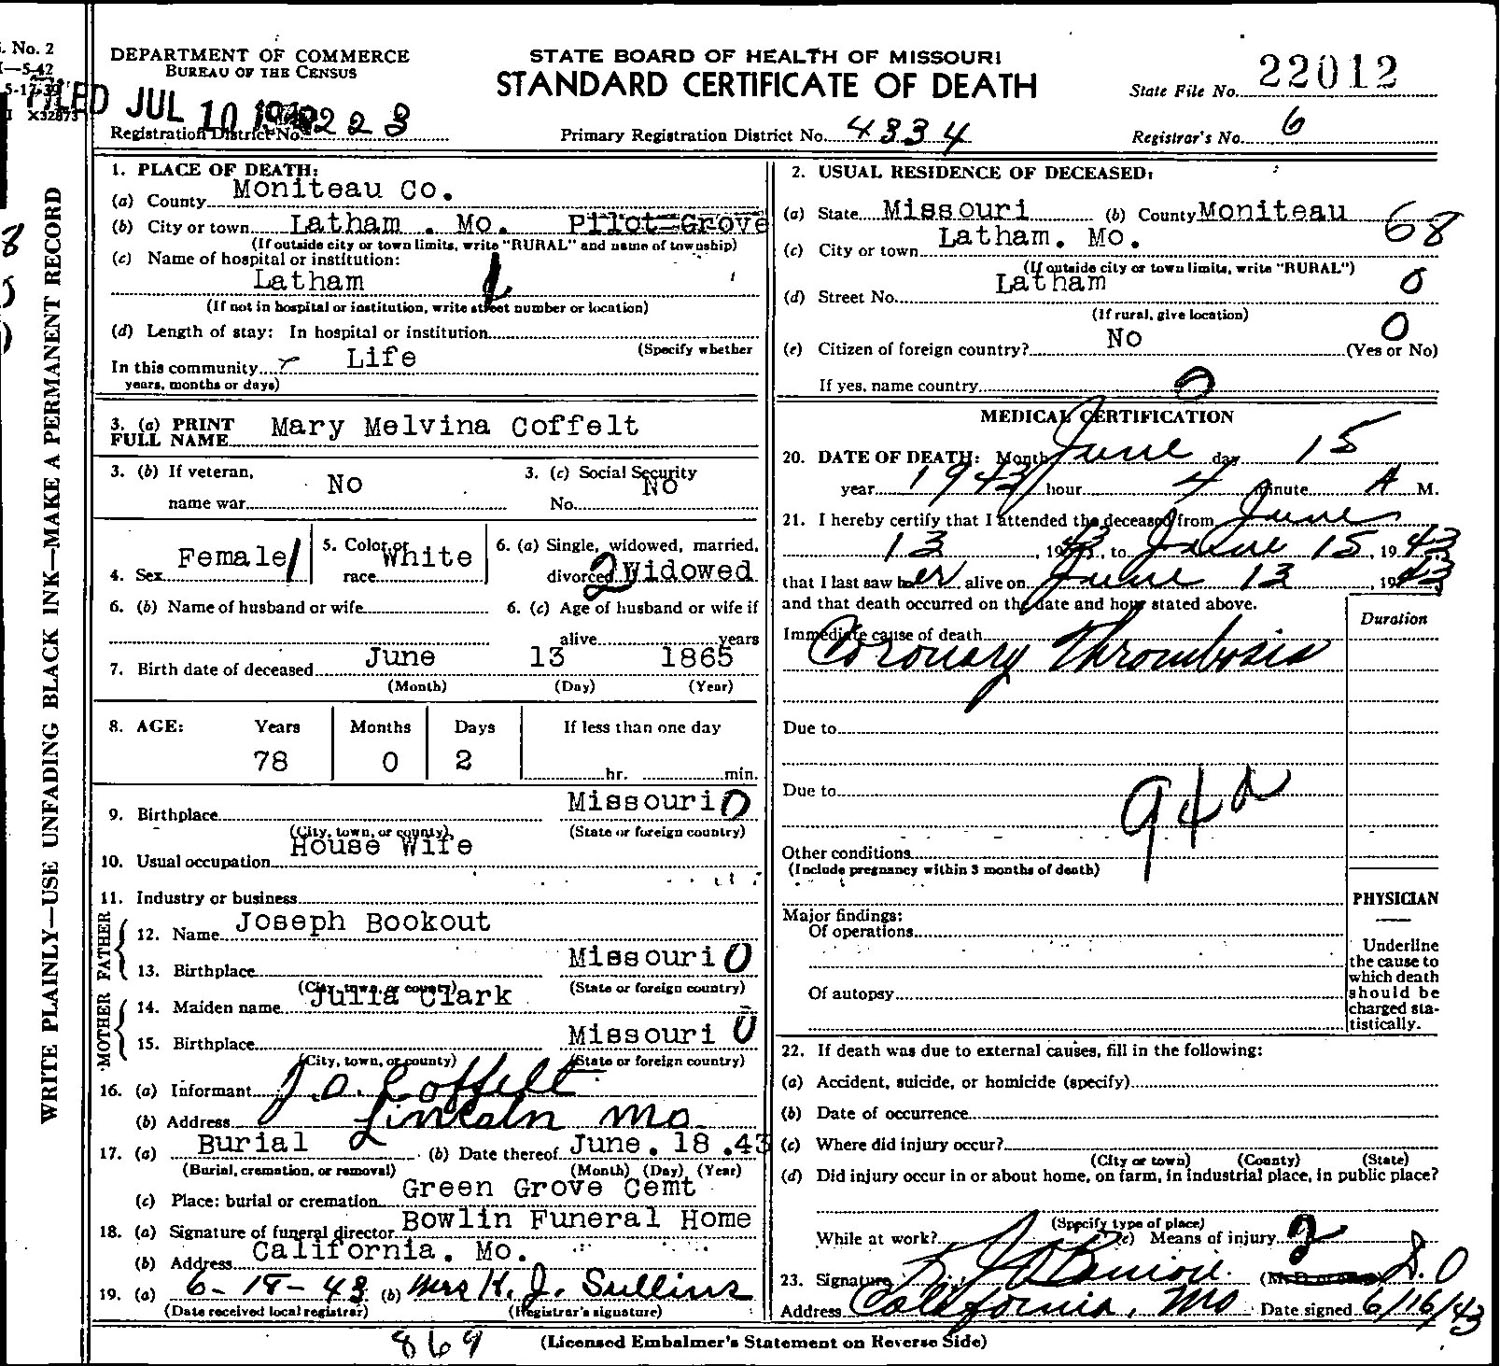 . No. 2
—5-42
5-17-39
X32873
DEPARTMENT OF COMMERCE
BUREAU OF THE CENSUS
STATE BOARD OF HEALTH OF MISSOURI
STANDARD CERTIFICATE OF DEATH
State File No. 22012
FILED JUL 10
Registration District No. 223
Primary Registration District No. 4334
Registrar's No. 6
WRITE PLAINLY—USE UNFADING BLACK INK—MAKE A PERMANENT RECORD
1. PLACE OF DEATH:
(a) County Moniteau Co.
(b) City or town Latham . Mo. Pilot Grove
(If outside city or town limits, write "RURAL" and name of township)
(c) Name of hospital or institution:
Latham
(If not in hospital or institution, write street number or location)
(d) Length of stay: In hospital or institution
(Specify whether
In this community Life
years, months or days)
3. (a) PRINT FULL NAME Mary Melvina Coffelt
3. (b) If veteran, name war No
3. (c) Social Security No. No
4. Sex Female
5. Color or race White
6. (a) Single, widowed, married, divorced 2 Widowed
6. (b) Name of husband or wife
6. (c) Age of husband or wife if alive years
7. Birth date of deceased June 13 1865
(Month) (Day) (Year)
8. AGE: Years Months Days If less than one day
78 0 2 hr. min.
9. Birthplace Missouri 0
(City, town, or county) (State or foreign country)
10. Usual occupation House Wife
11. Industry or business
FATHER
12. Name Joseph Bookout
13. Birthplace Missouri 0
(City, town, or county) (State or foreign country)
MOTHER
14. Maiden name Julia Clark
15. Birthplace Missouri 0
(City, town, or county) (State or foreign country)
16. (a) Informant J.O. Coffelt
(b) Address Lincoln Mo.
17. (a) Burial (b) Date thereof June. 18 .43
(Burial, cremation, or removal) (Month) (Day) (Year)
(c) Place: burial or cremation Green Grove Cemt
18. (a) Signature of funeral director Bowlin Funeral Home
(b) Address California. Mo.
19. (a) 6-18-43 (b) Mrs H. J. Sullins
(Date received local registrar) (Registrar's signature)
2. USUAL RESIDENCE OF DECEASED:
(a) State Missouri (b) County Moniteau 68
(c) City or town Latham. Mo.
(If outside city or town limits, write "RURAL")
(d) Street No. Latham 0
(If rural, give location)
(e) Citizen of foreign country? No 0 (Yes or No)
If yes, name country 0
MEDICAL CERTIFICATION
20. DATE OF DEATH: Month June day 15
year 1943 hour 4 minute A M.
21. I hereby certify that I attended the deceased from June
13, 1943, to June 15, 1943
that I last saw her alive on June 13, 1943
and that death occurred on the date and hour stated above.
Duration
Immediate cause of death
Coronary Thrombosis
Due to
Due to
94a
Other conditions
(Include pregnancy within 3 months of death)
Major findings:
Of operations
Of autopsy
PHYSICIAN
Underline the cause to which death should be charged statistically.
22. If death was due to external causes, fill in the following:
(a) Accident, suicide, or homicide (specify)
(b) Date of occurrence
(c) Where did injury occur?
(City or town) (County) (State)
(d) Did injury occur in or about home, on farm, in industrial place, in public place?
(Specify type of place)
While at work? (e) Means of injury 2
23. Signature (M. D. or other) D.O
Address California, Mo Date signed 6/16/43
869
(Licensed Embalmer's Statement on Reverse Side)